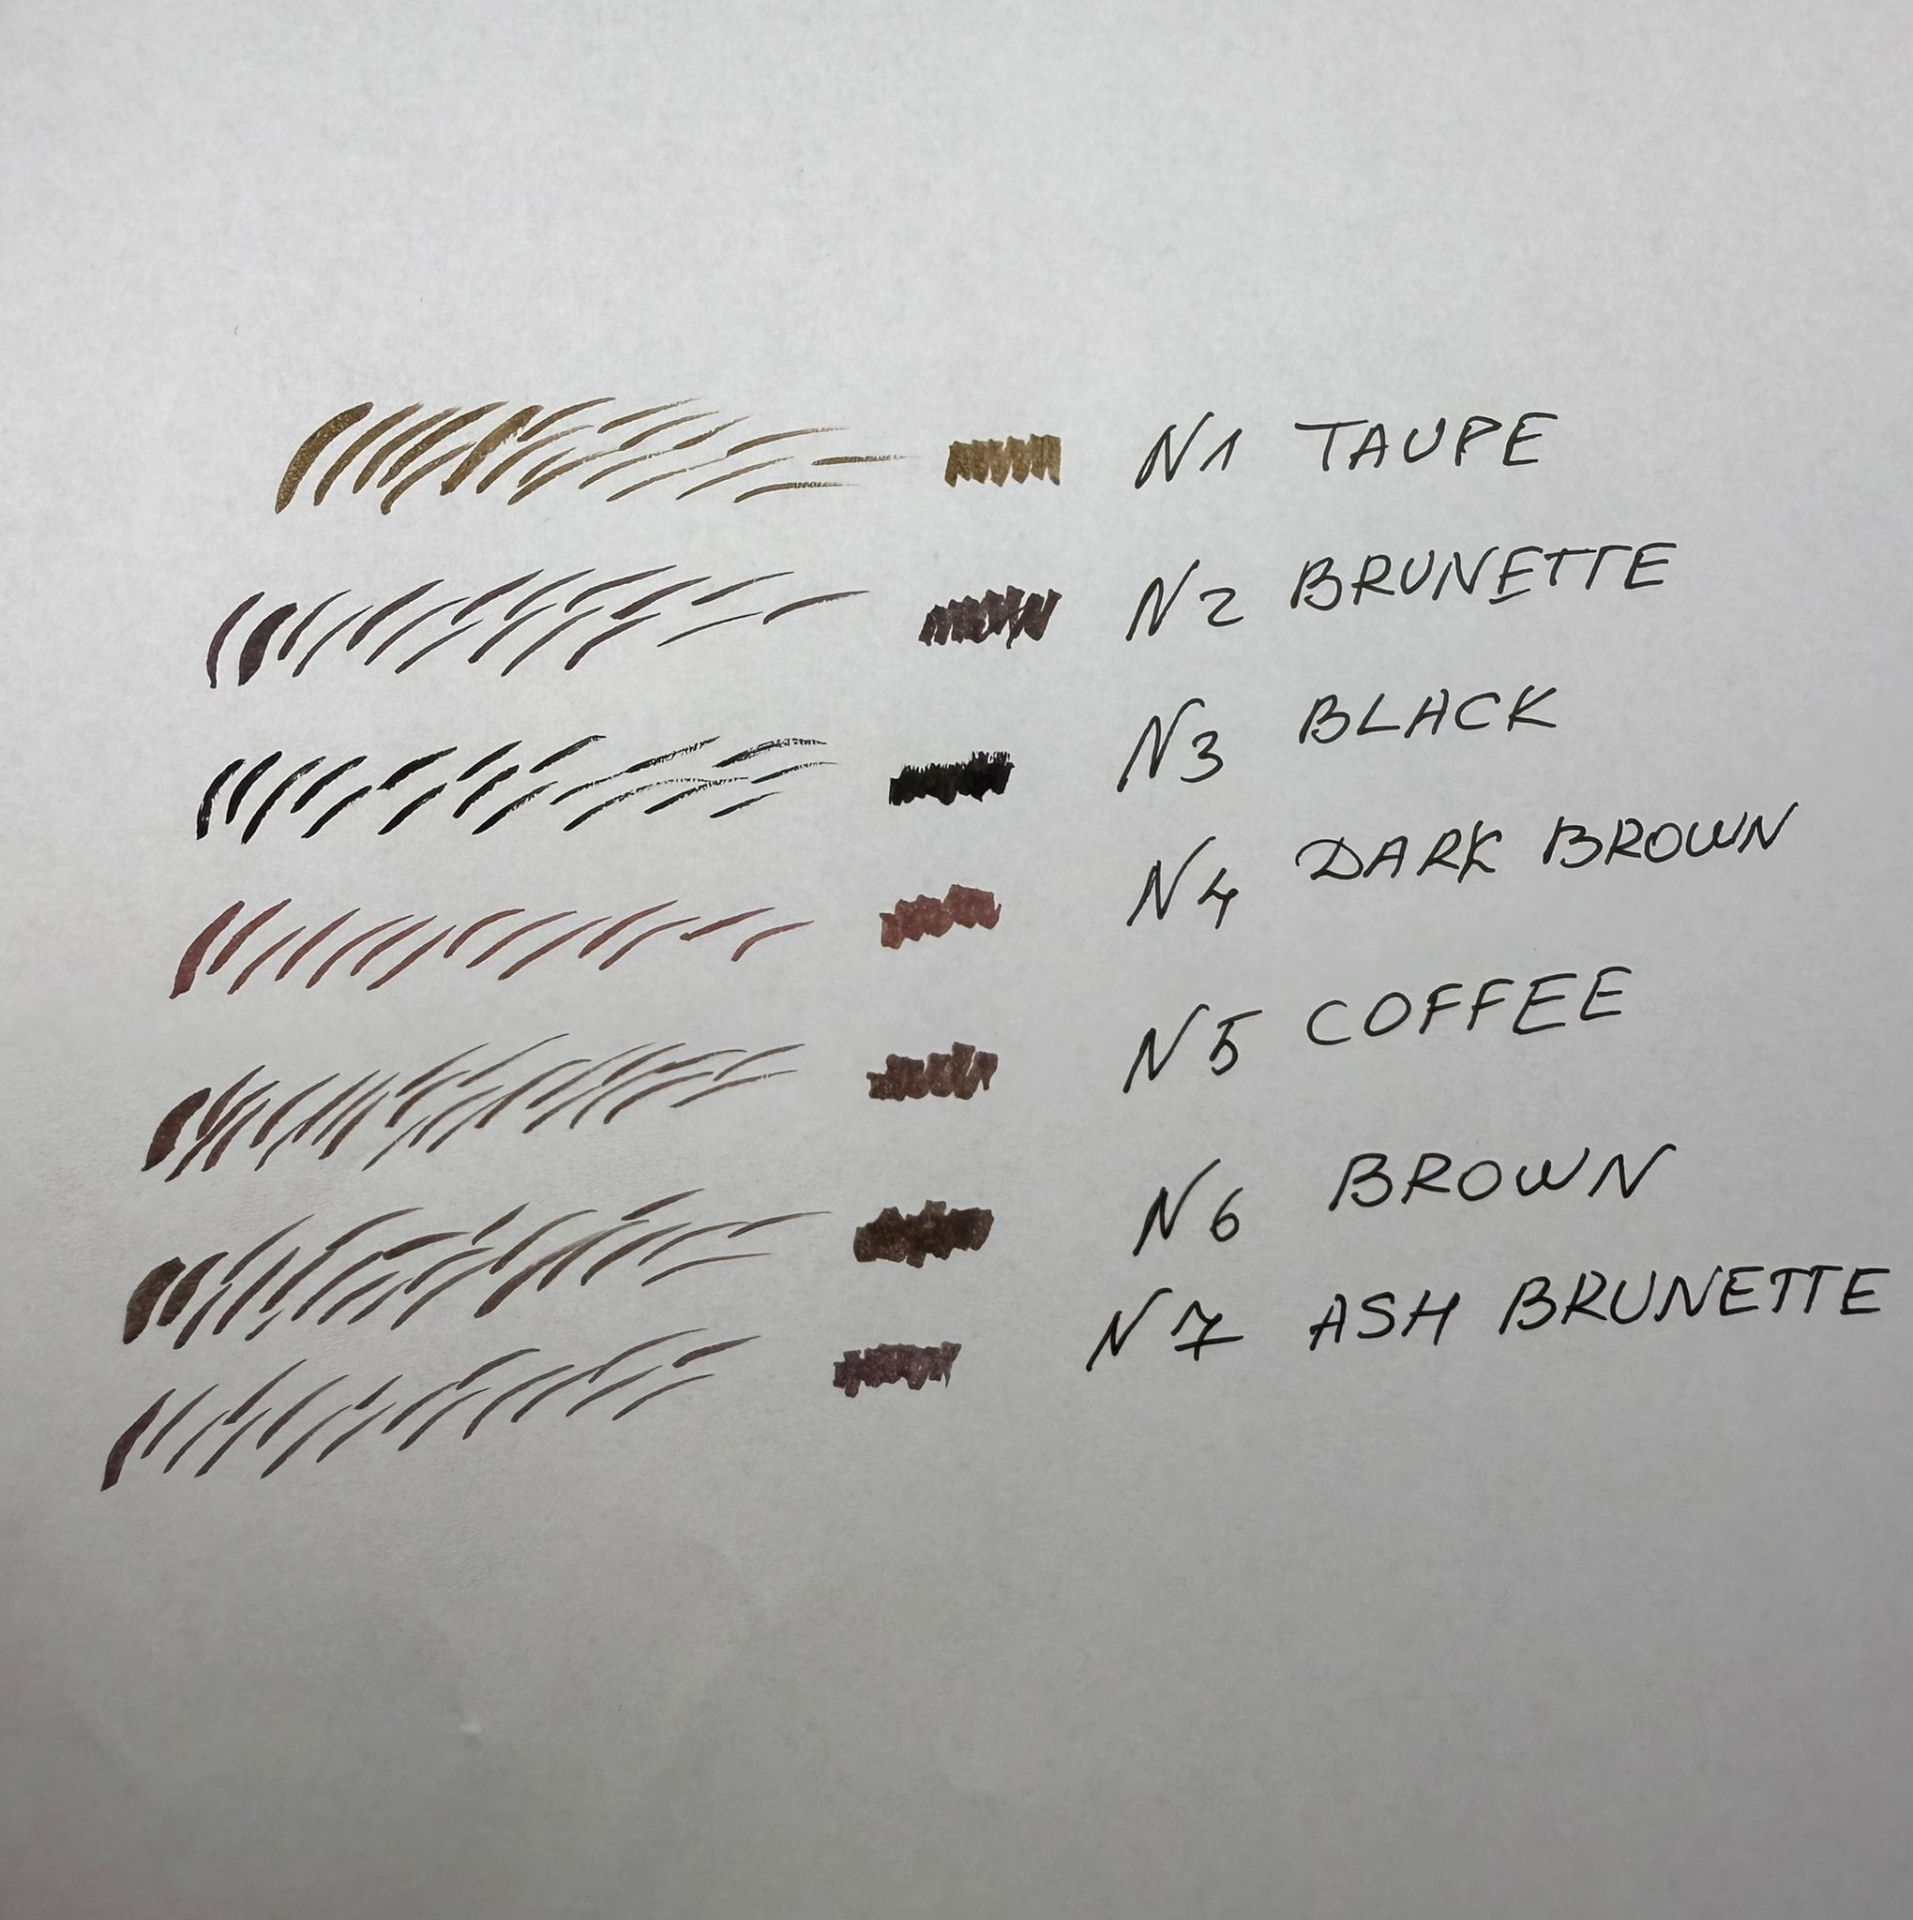 N1 TAUPE
N2 BRUNETTE
N3 BLACK
N4 DARK BROWN
N5 COFFEE
N6 BROWN
N7 ASH BRUNETTE